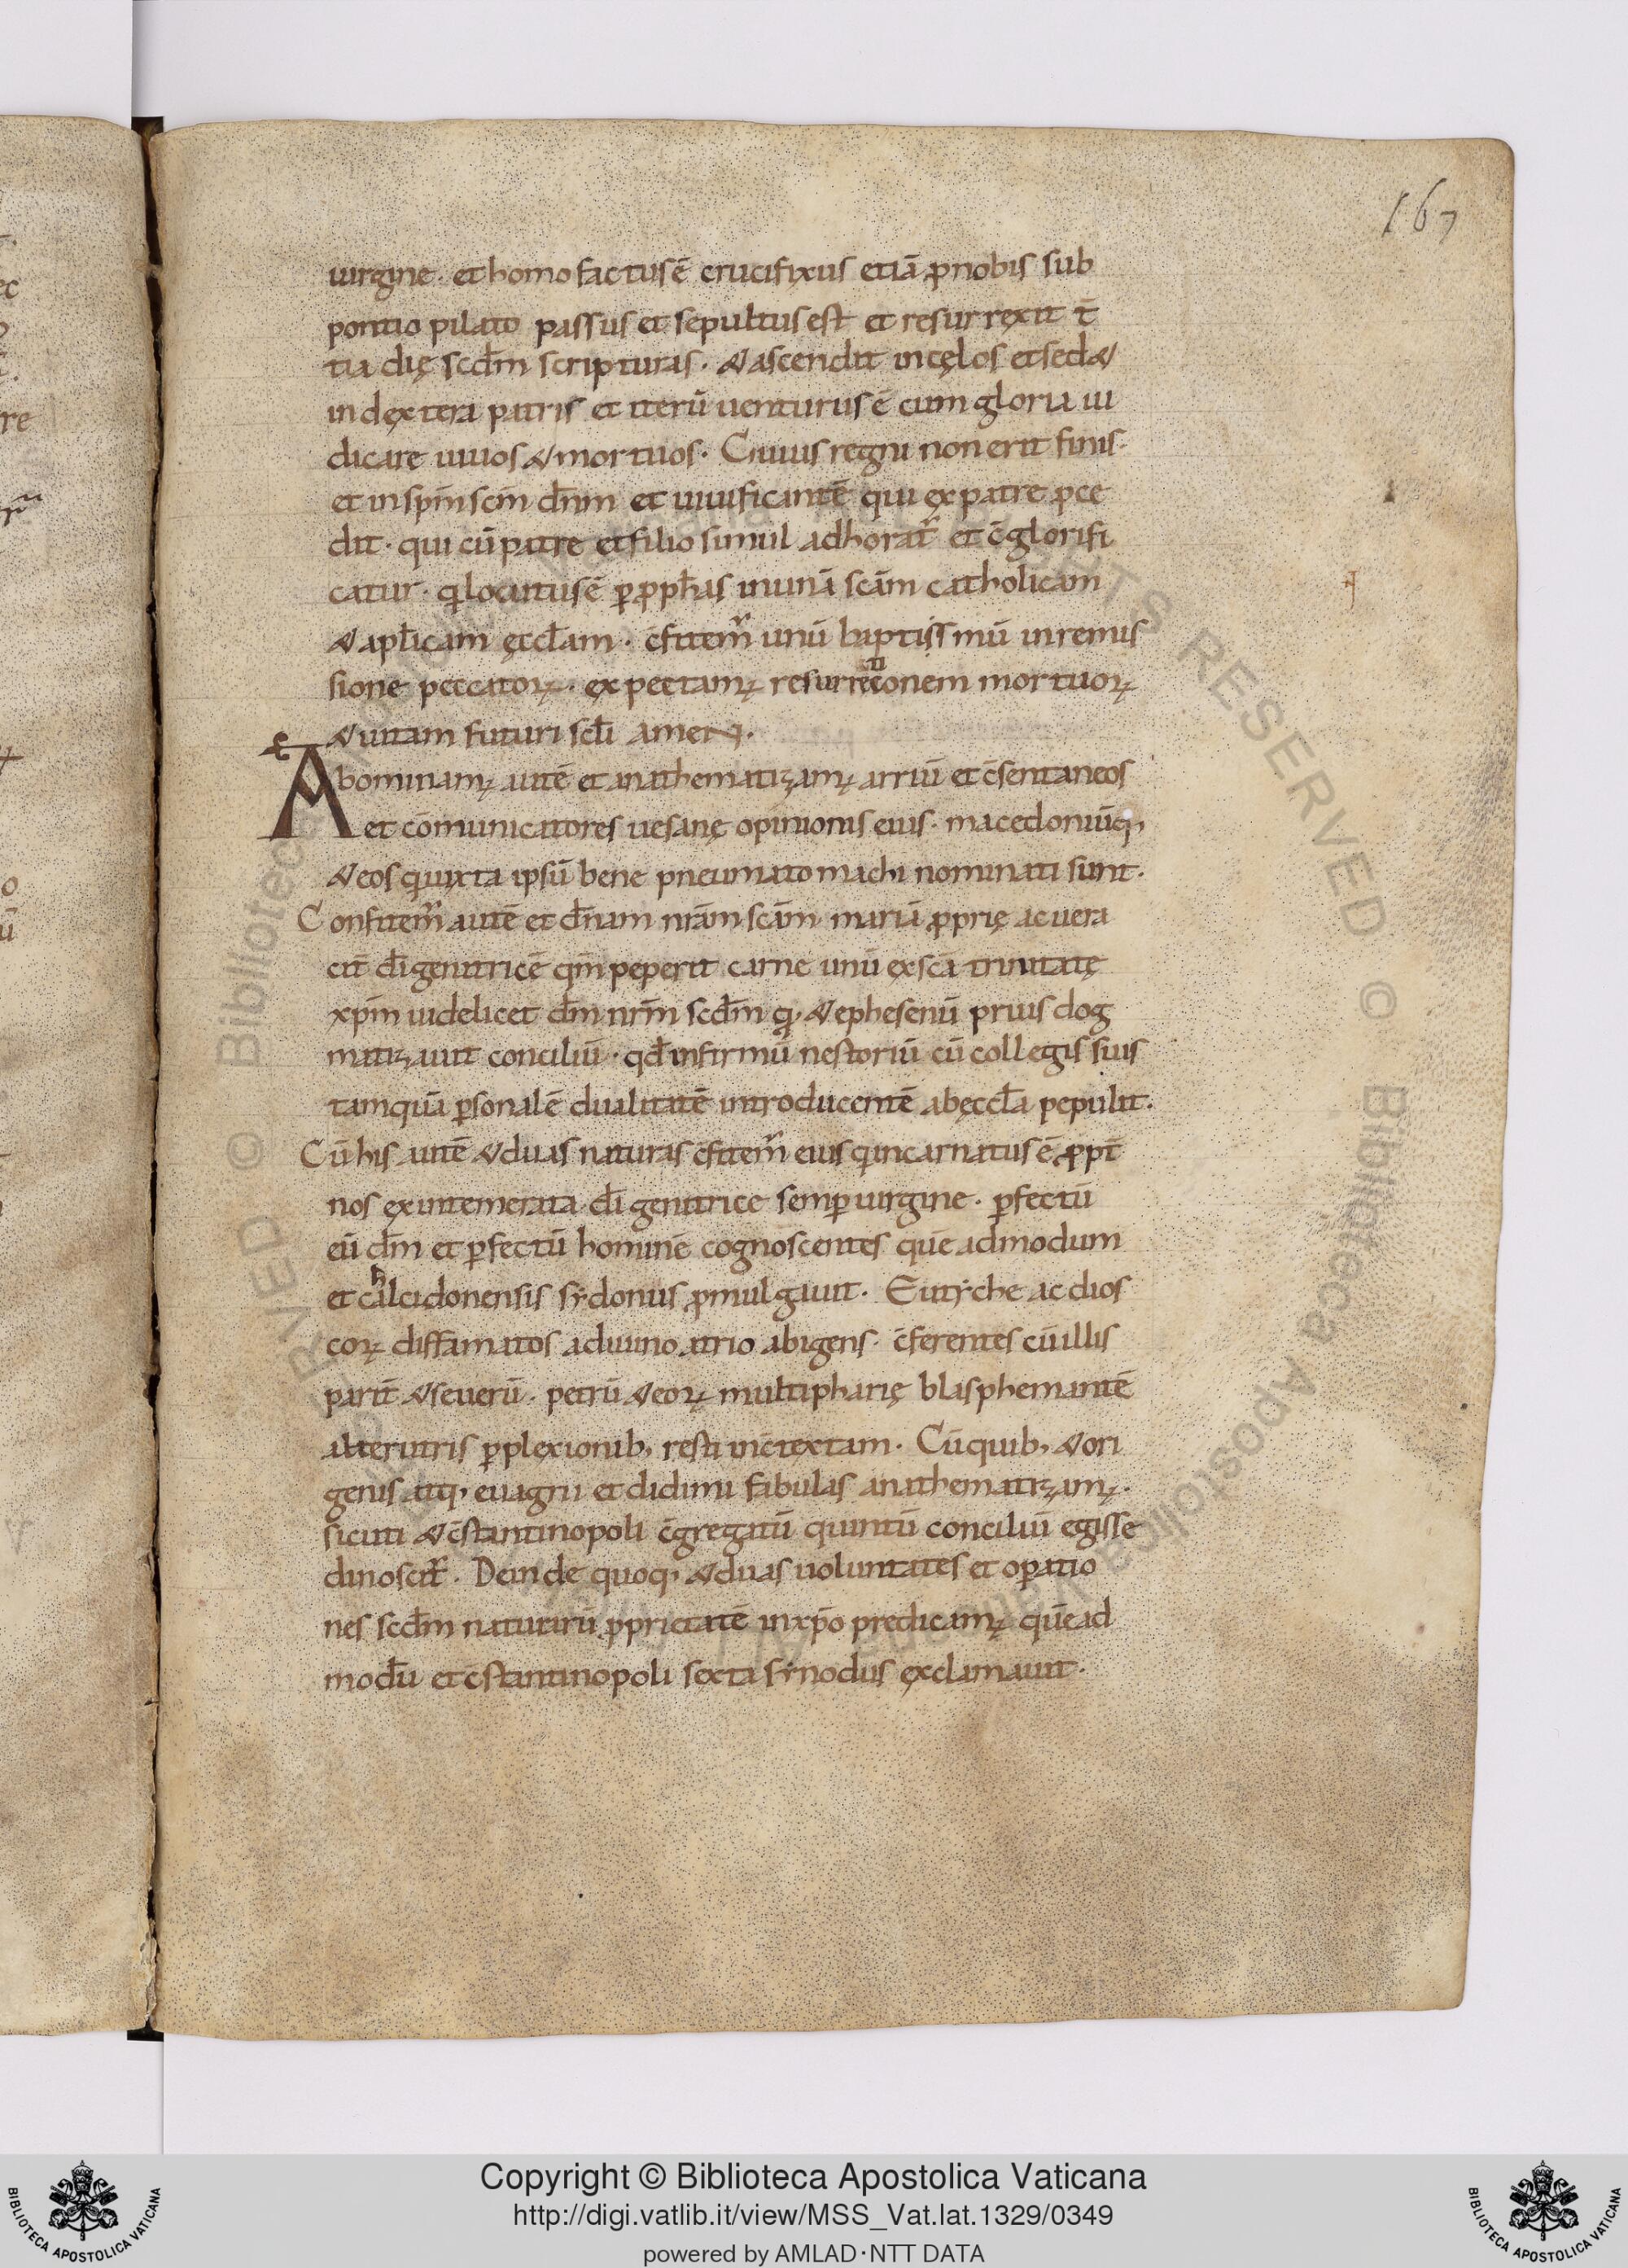 167
uirgine· et homo factus ē crucifixus etiā ꝓ nobis sub
pontio pilato passus et sepultus est et resurrexit t̄
tia dię scd̄m scripturas· & ascendit in cęlos et sed&
in dextera patris et iterū uenturus ē cum gloria iu
dicare uiuos & mortuos· Cuius regni non erit finis·
et in sp̄m sc̄m dn̄m et uiuificantē qui ex patre ꝓce
dit· qui cū patre et filio simul adhorat᷑ et c̄glorifi
catur· q̇ locutus ē ꝑ ꝓph̄as in unā scām catholicam
& apl̄icam ęccl̄am· c̄fitem᷑ unū baptissmū in remis
sione peccatoꝝ· expectamꝰ resurrectionem mortuoꝝ
& uitam futuri scl̄i amen·
Abominamꝰ autē et anathematizamꝰ arriū et c̄sentaneos
et cōmunicatores uesanę opinionis eius· macedoniūq,
& eos q iuxta ipsū bene pneumatomachi nominati sunt·
Confitem᷑ autē et dn̄am nr̄am scām mariā ꝓprię ac uera
cit̄ dī genitricē qm̄ peperit carne unū ex scā trinitatę
xp̄m uidelicet dm̄ nr̄m scd̄m q & ephesenū prius dog
matizauit conciliū· qd̄ infirmū nestoriū cū collegis suis
tamquā ꝑsonalē dualitatē introducentē ab ęccl̄a pepulit·
Cū his autē & duas naturas c̄fitem᷑ eius q incarnatus ē ꝓpt̄
nos ex intemerata dī genitrice semꝑ uirgine· ꝑfectū
eū dm̄ et ꝑfectū hominē cognoscentes quēadmodum
et chalcidonensis sydonus ꝓmulgauit· Eutyche ac dios
coꝝ diffamatos a diuino atrio abigens· c̄ferentes cū illis
parit̄ & seuerū· petrū & eoꝝ multipharię blasphemantē
alterutris ꝑplexionib, resti inc̄textam· Cū quib, & ori
genis atq, euagrii et didimi fabulas anathematizamꝰ·
sicuti & c̄stantinopoli c̄gregatū quintū conciliū egisse
dinoscit᷑· Deinde quoq, & duas uoluntates et oꝑatio
nes scd̄m naturarū ꝓprietatē in xp̄o predicamꝰ quēad
modū et c̄stantinopoli sexta synodus exclamauit·
Copyright © Biblioteca Apostolica Vaticana
http://digi.vatlib.it/view/MSS_Vat.lat.1329/0349
powered by AMLAD·NTT DATA
BIBLIOTECA APOSTOLICA VATICANA
BIBLIOTECA APOSTOLICA VATICANA